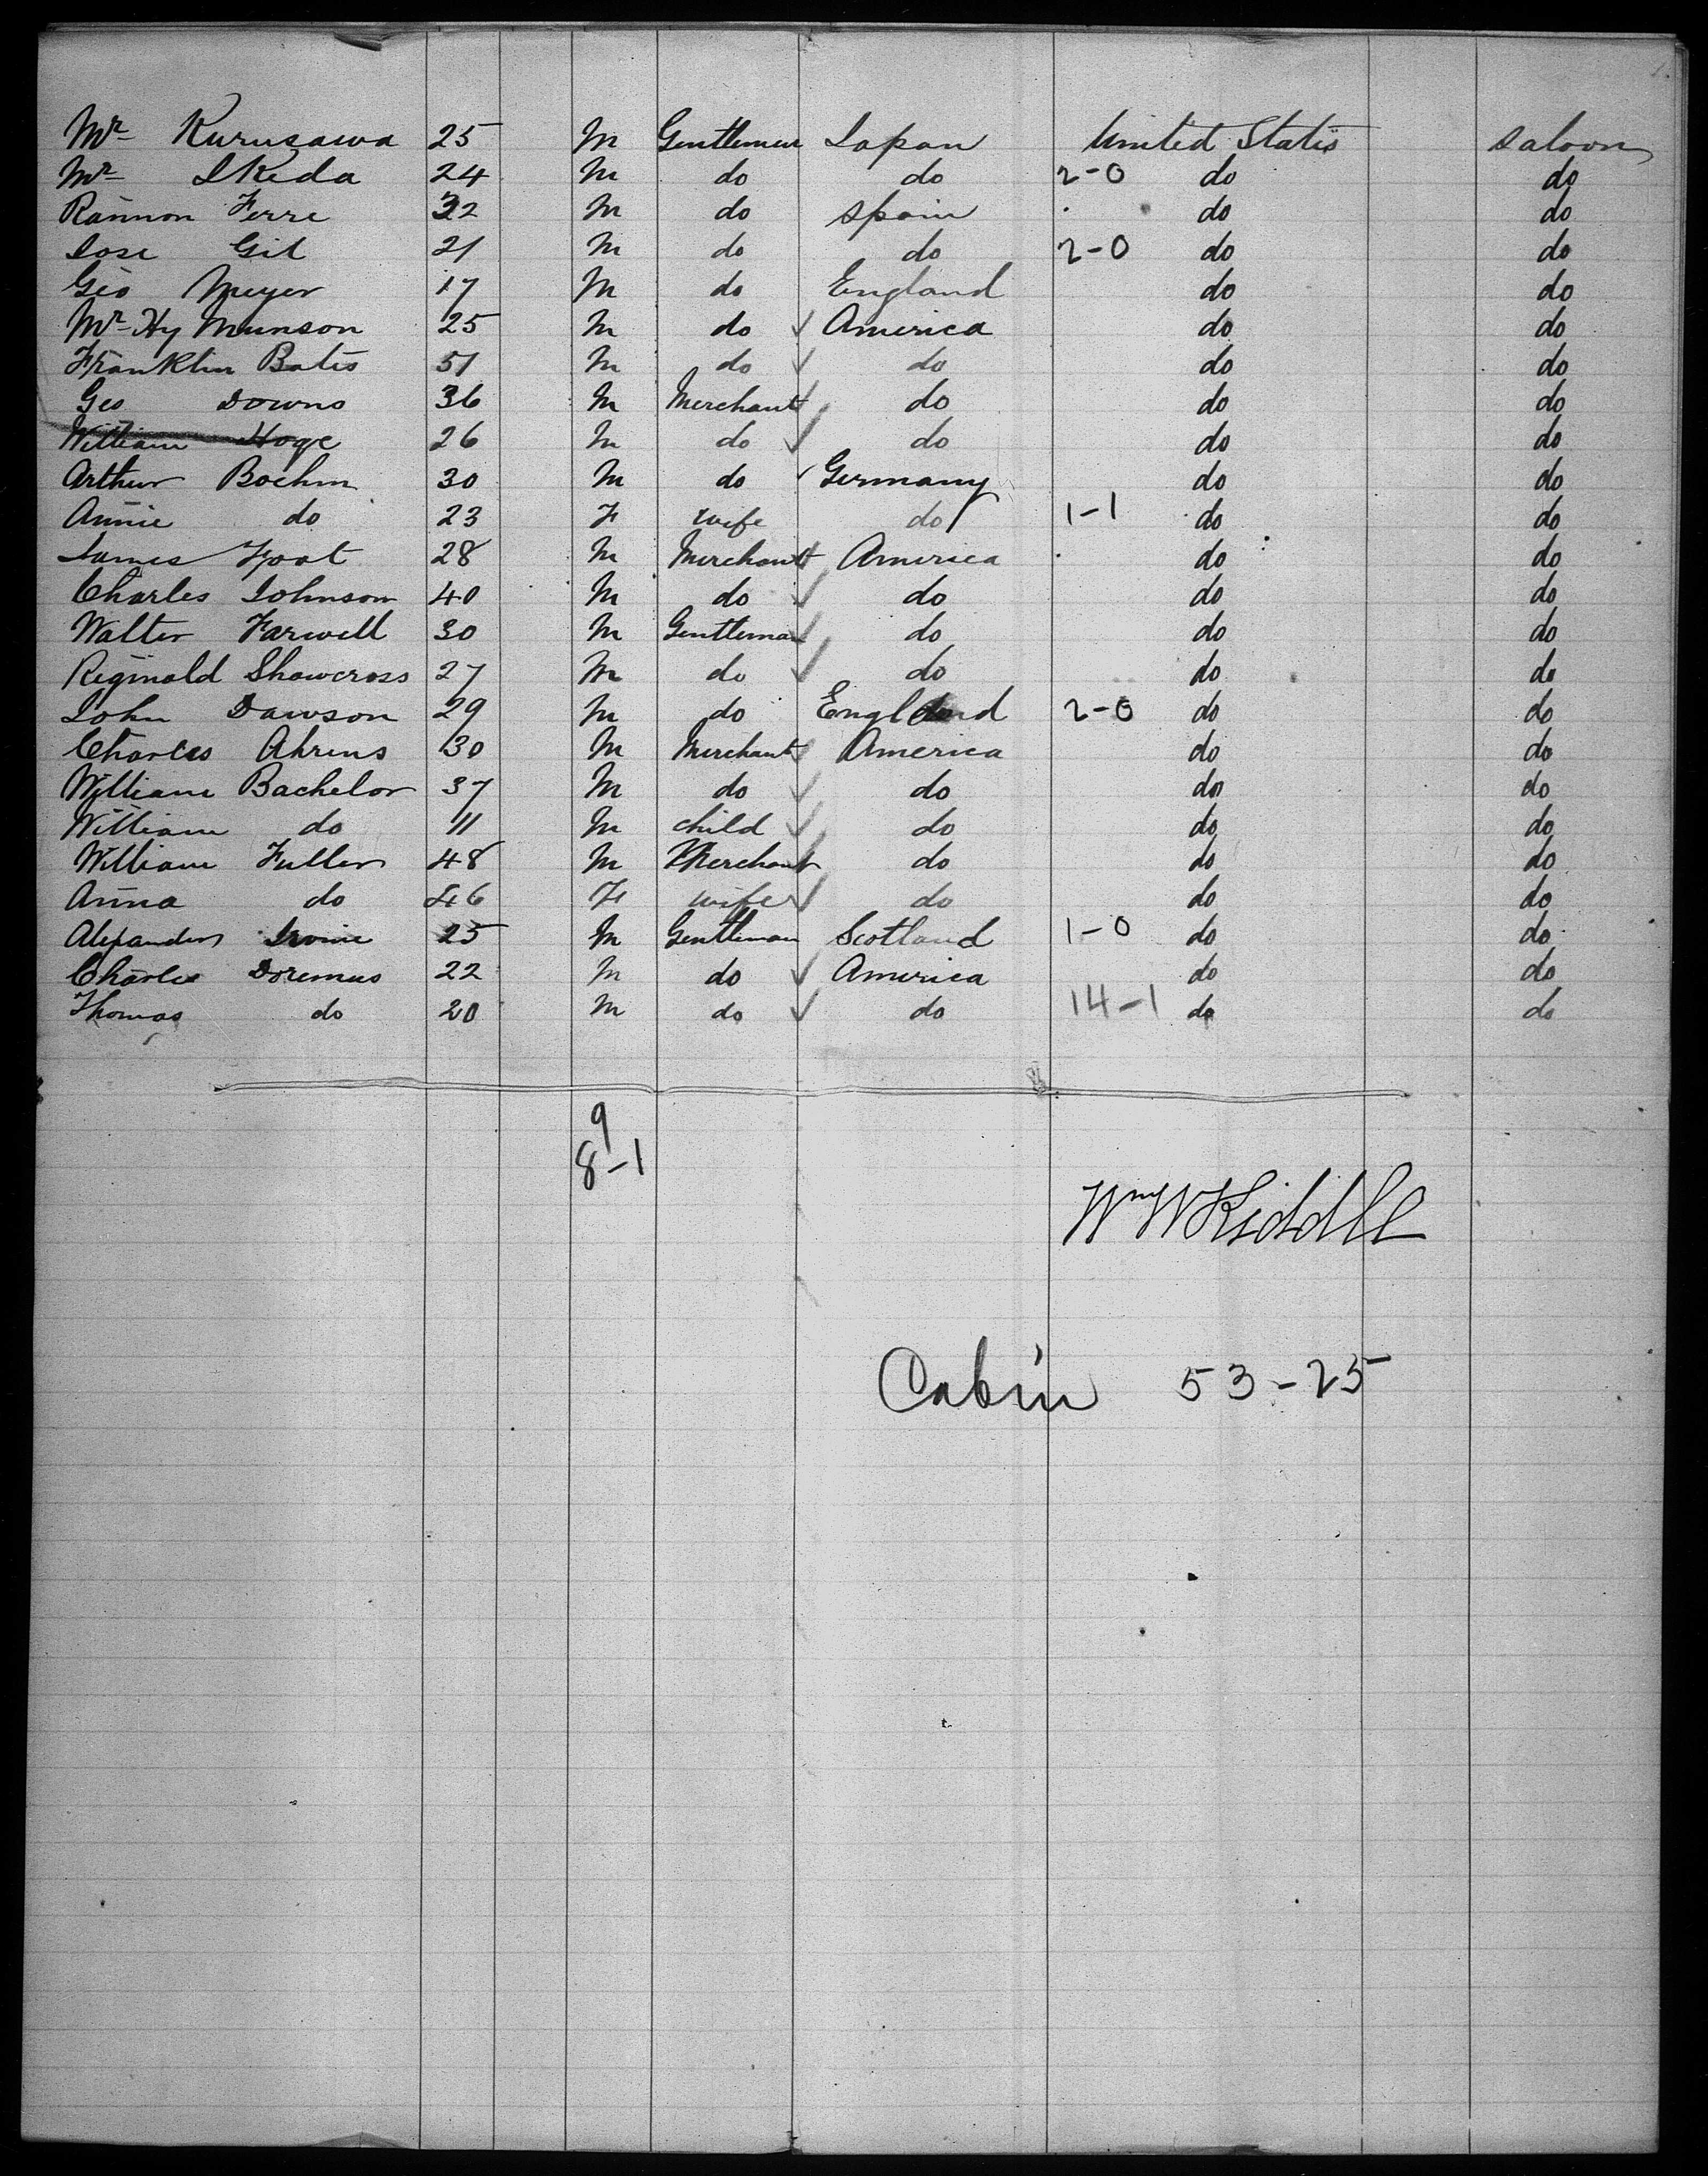 Mr Kurusawa 25 M Gentleman Japan United States Saloon
Mr Ikeda 24 M do do 2-0 do do
Rannon Ferre 32 M do Spain do do
Jose Gil 21 M do do 2-0 do do
Geo Meyer 17 M do England do do
Mr Hy Munson 25 M do America do do
Franklin Bates 51 M do do do do
Geo Downs 36 M Merchant do do do
William Hoge 26 M do do do do
Arthur Boehm 30 M do Germany do do
Annie do 23 F wife do 1-1 do do
James Foot 28 M Merchant America do do
Charles Johnson 40 M do do do do
Walter Farwell 30 M Gentleman do do do
Reginald Shawcross 27 M do do do do
John Dawson 29 M do England 2-0 do do
Charles Ahrens 30 M Merchant America do do
William Bachelor 37 M do do do do
William do 11 M child do do do
William Fuller 48 M Merchant do do do
Anna do 46 F wife do do do
Alexander Irvine 25 M Gentleman Scotland 1-0 do do
Charles Doremus 22 M do America do do
Thomas do 20 M do do 14-1 do do
9
8-1
Wm W Kiddle
Cabin 53-25